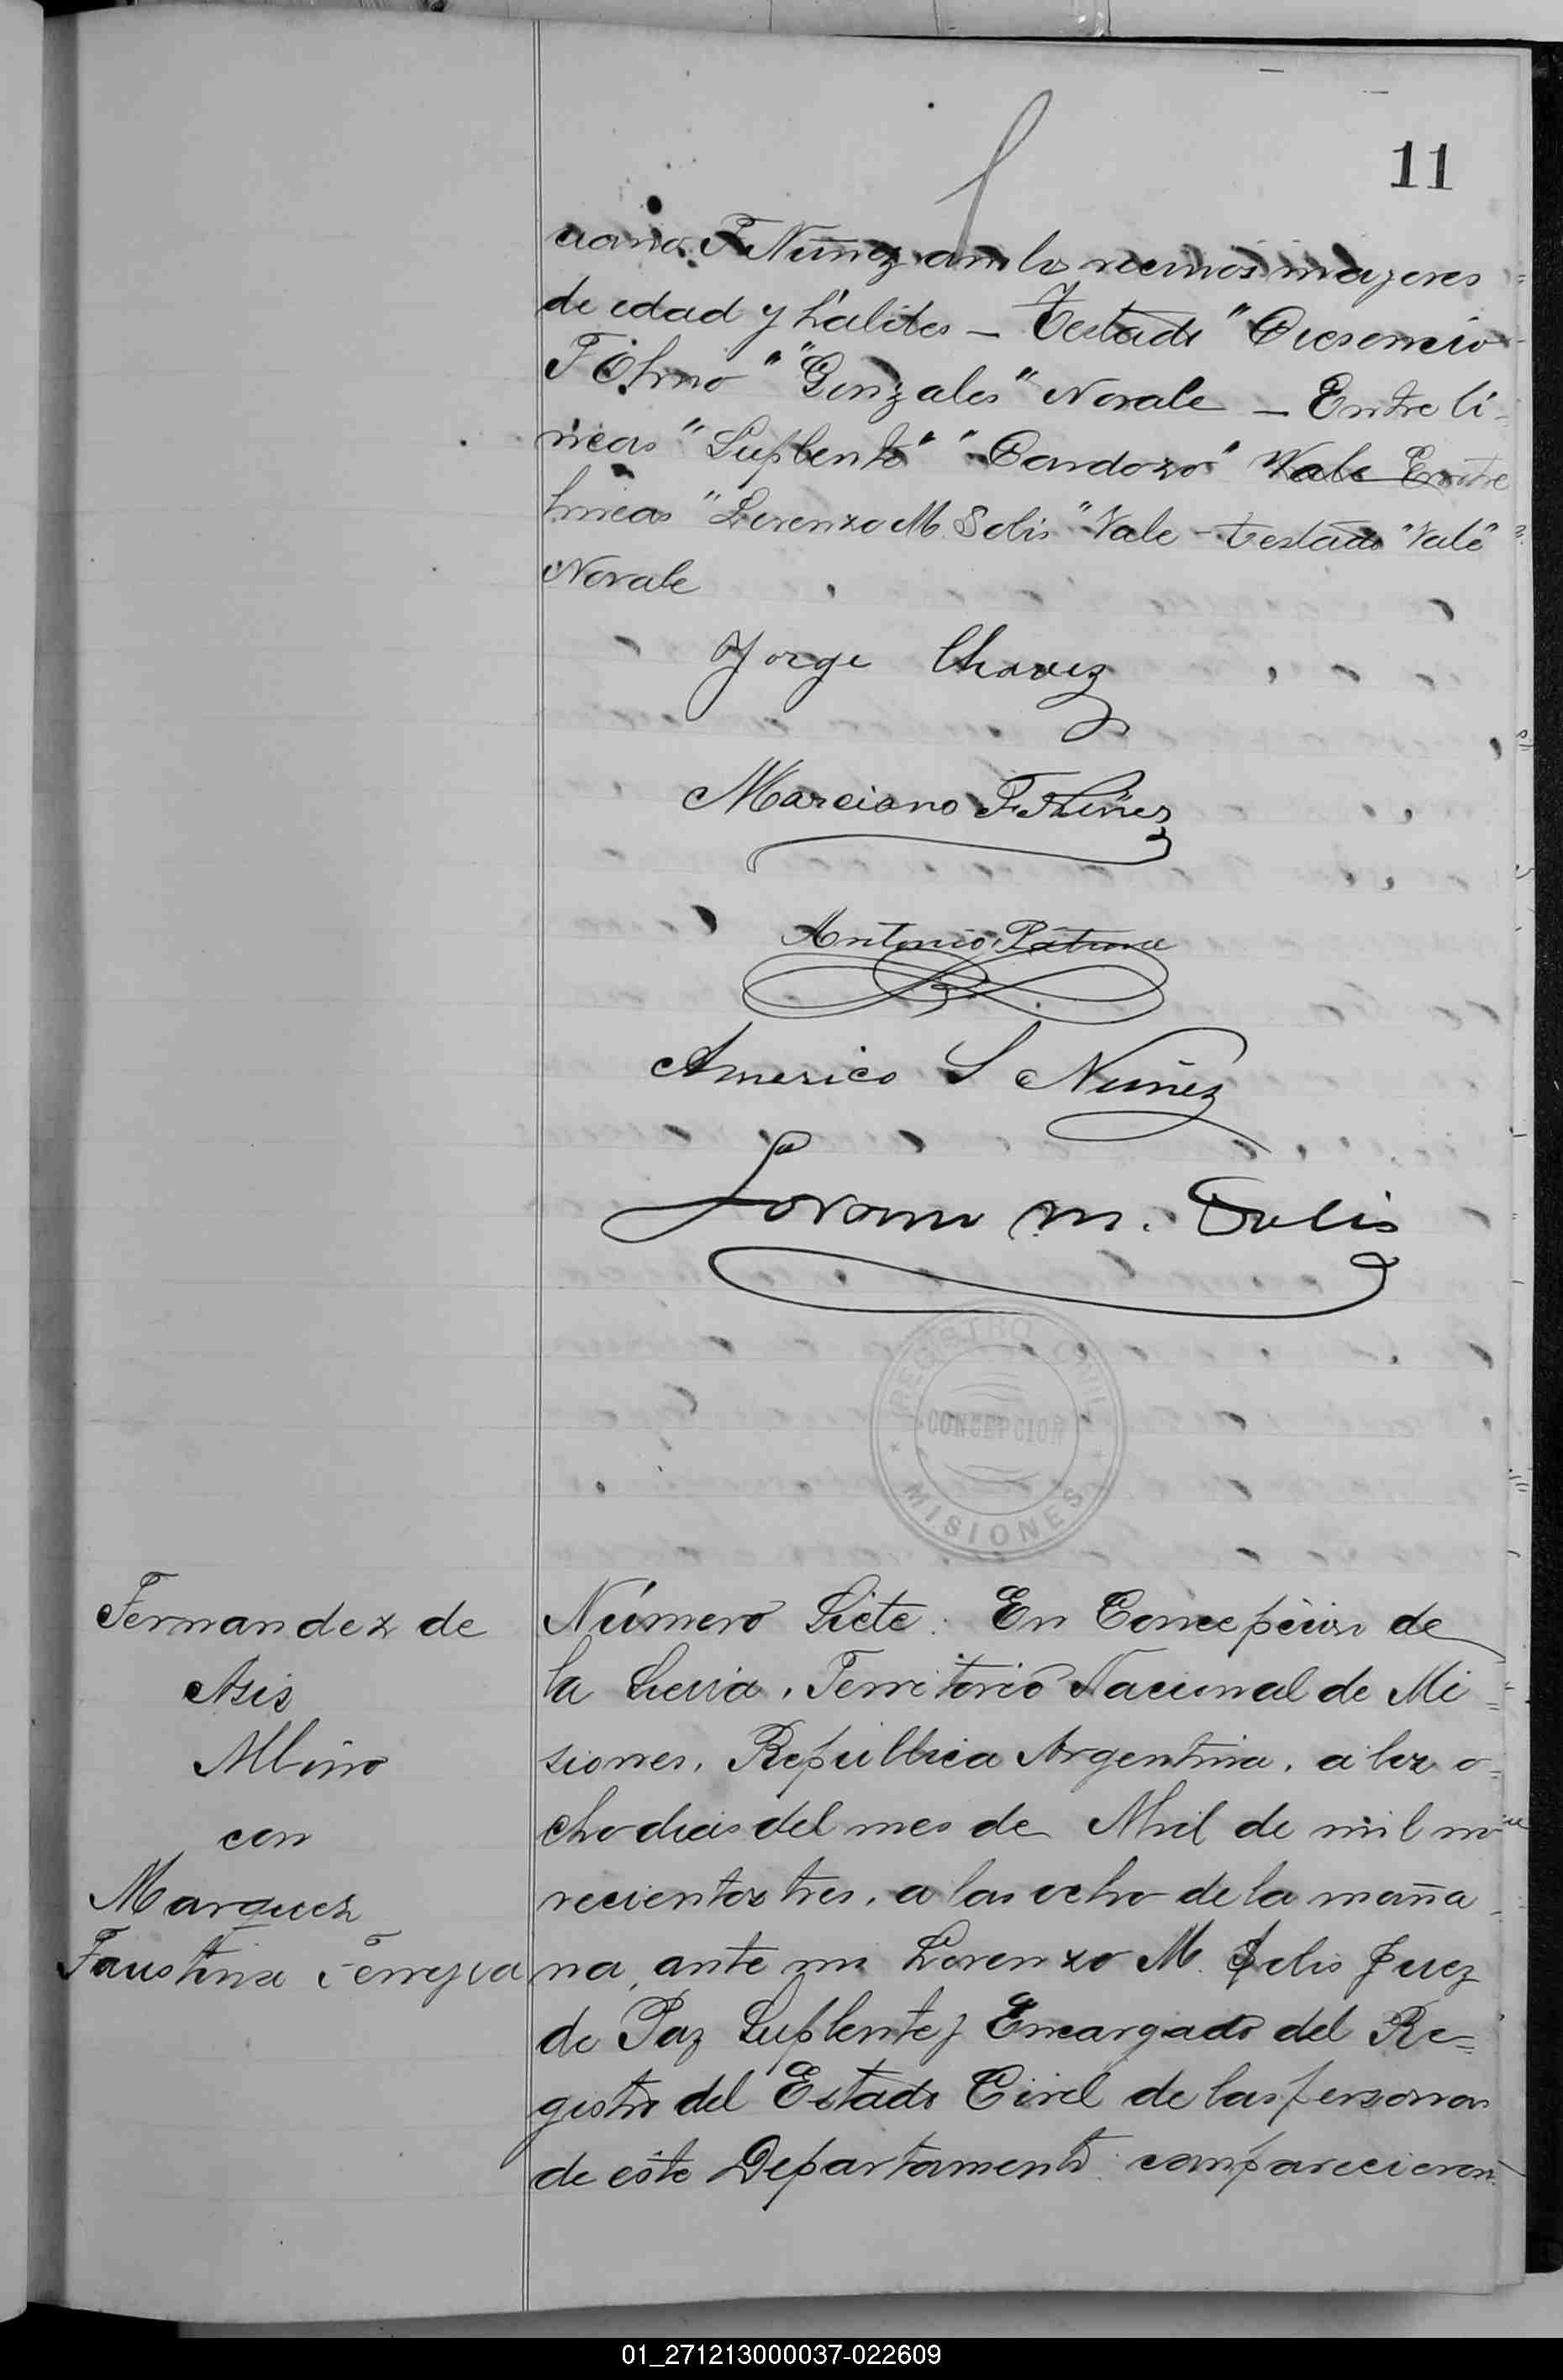 11
ciano F Nuñez ambos vecinos mayores
de edad y hábiles – Testado "Cresencio
F Olmo" "Gonzales" No vale – Entre lí-
neas "Suplente" "Cardozo" Vale Entre
lineas "Lorenzo M. Solis" Vale – Testado "Vale"
No vale
Jorge Chavez
Marciano F. Nuñez
Antonio
Americo S Nuñez
Lorenzo M. Solis
REGISTRO CIVIL
CONCEPCION
MISIONES
Fernandez de
Asis
Albino
con
Marquez
Faustina Ferreyra
Número Siete. En Concepcion de
la Sierra, Territorio Nacional de Mi=
siones, República Argentina, a los o=
cho dias del mes de Abril de mil no
vecientos tres, a las ocho de la maña-
na, ante mi Lorenzo M. Solis Juez
de Paz Suplente y Encargado del Re=
gistro del Estado Civil de las personas
de este Departamento: comparecieron
01_271213000037-022609